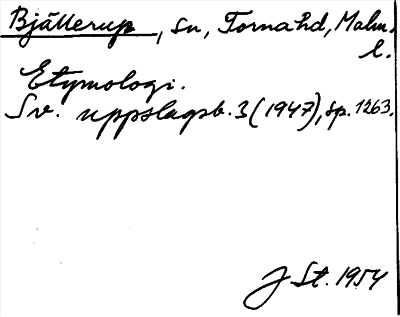 Bjällerup, sn, Torna hd, Malm.
l.
Etymologi.
Sv. uppslagsb. 3 (1947), sp. 1263.
J St. 1954